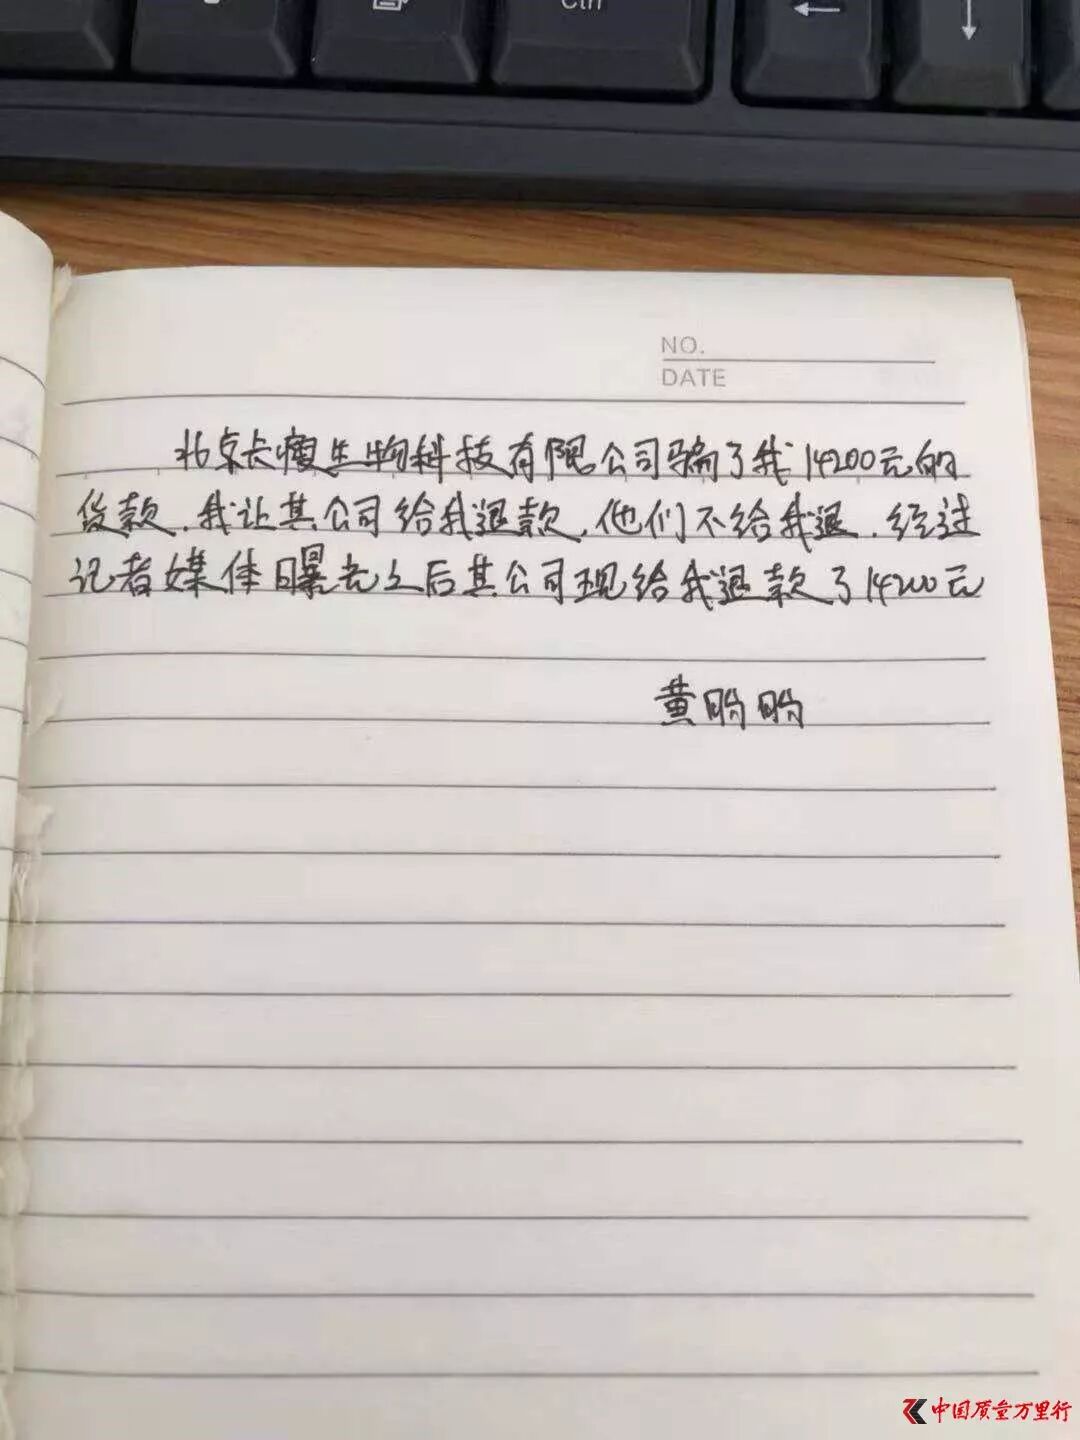 Ctrl
NO.
DATE
北京长瘦生物科技有限公司骗了我14200元的
货款.我让其公司给我退款,他们不给我退.经过
记者媒体曝光之后其公司现给我退款了14200元
黄盼盼
中国质量万里行